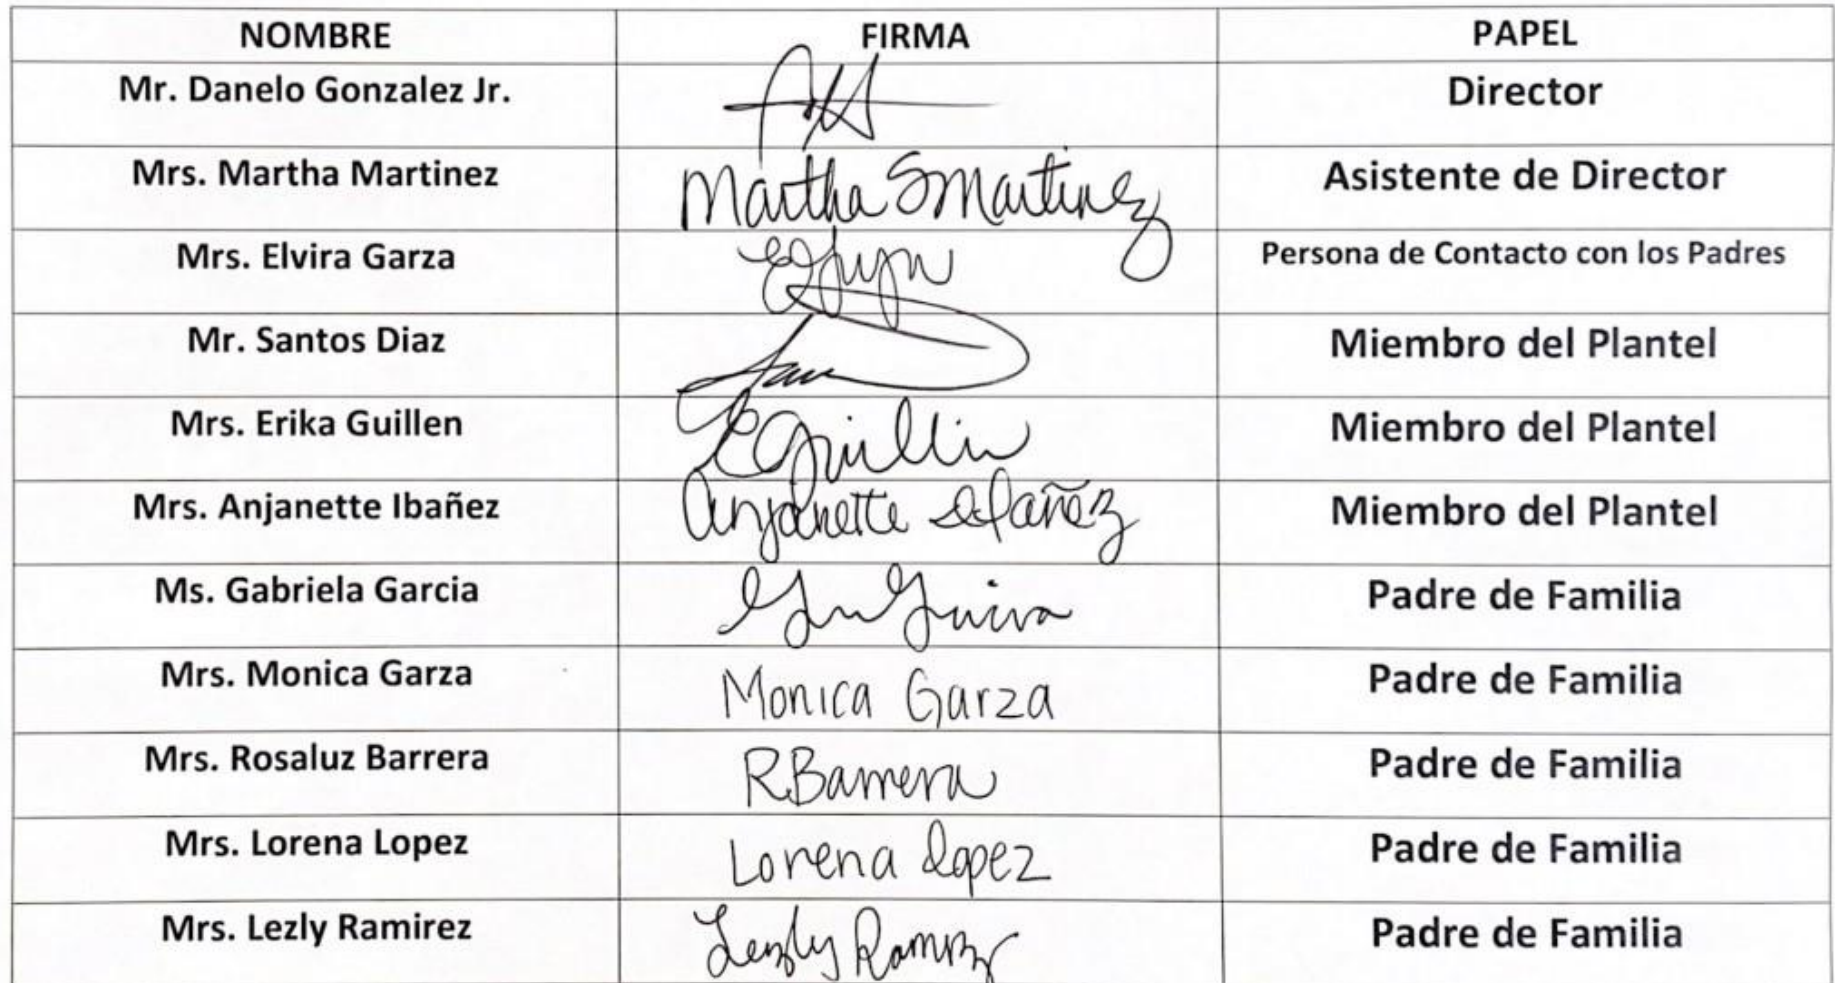 NOMBRE FIRMA PAPEL
Mr. Danelo Gonzalez Jr. Director
Mrs. Martha Martinez Martha S Martinez Asistente de Director
Mrs. Elvira Garza Persona de Contacto con los Padres
Mr. Santos Diaz Miembro del Plantel
Mrs. Erika Guillen EGuillen Miembro del Plantel
Mrs. Anjanette Ibañez Anjanette Ibañez Miembro del Plantel
Ms. Gabriela Garcia Padre de Familia
Mrs. Monica Garza Monica Garza Padre de Familia
Mrs. Rosaluz Barrera RBarrera Padre de Familia
Mrs. Lorena Lopez Lorena Lopez Padre de Familia
Mrs. Lezly Ramirez Lezly Ramirez Padre de Familia